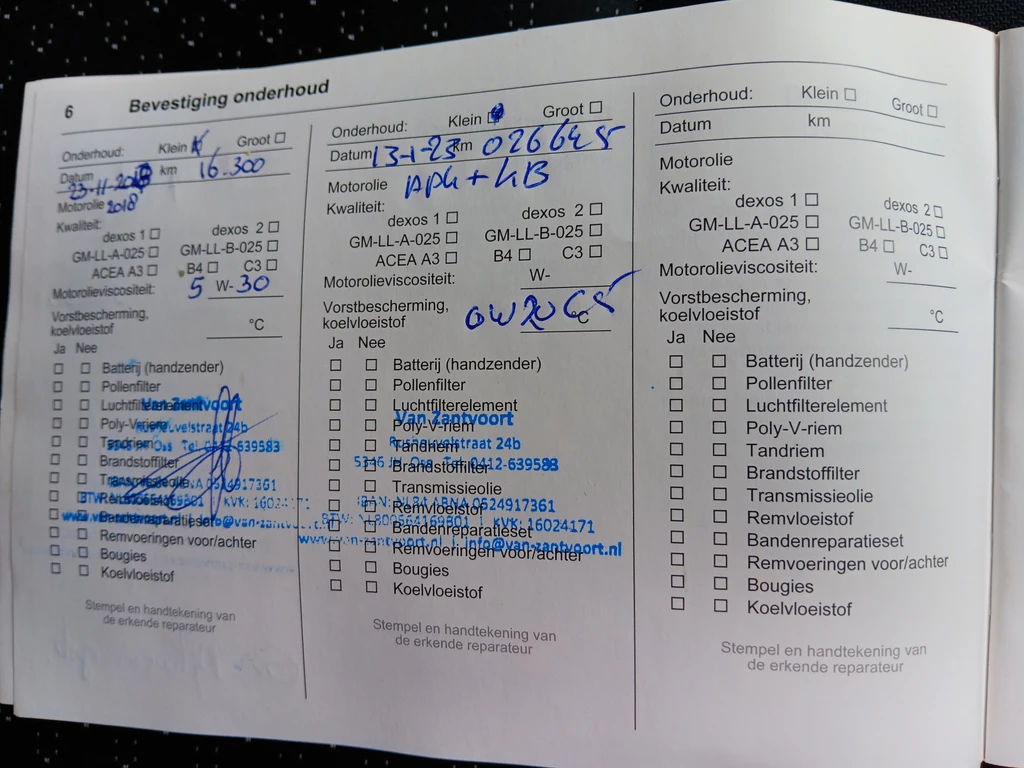 6 Bevestiging onderhoud
Onderhoud: Klein Groot
Datum 23-11-2018 km 16.300
Motorolie 2018
Kwaliteit:
dexos 1 dexos 2
GM-LL-A-025 GM-LL-B-025
ACEA A3 B4 C3
Motorolieviscositeit: 5 W- 30
Vorstbescherming,
koelvloeistof °C
Ja Nee
Batterij (handzender)
Pollenfilter
Luchtfilterelement
Van Zantvoort
Poly-V-riem
Tandriem
Oss Tel 0412-639583
Brandstoffilter
Transmissieolie
Remvloeistof
KVK: 16024171
Bandenreparatieset
Remvoeringen voor/achter
Bougies
Koelvloeistof
Stempel en handtekening van
de erkende reparateur
Onderhoud: Klein Groot
Datum 13-1-23 km 026645
Motorolie
Kwaliteit:
dexos 1 dexos 2
GM-LL-A-025 GM-LL-B-025
ACEA A3 B4 C3
Motorolieviscositeit: W-
Vorstbescherming,
koelvloeistof 0W20 C5 °C
Ja Nee
Batterij (handzender)
Pollenfilter
Luchtfilterelement
Van Zantvoort
Poly-V-riem
24b
Tandriem
Oss Tel 0412-639583
Brandstoffilter
Transmissieolie
IBAN: NL84 ABNA 0524917361
Remvloeistof
KVK: 16024171
Bandenreparatieset
www.van-zantvoort.nl | info@van-zantvoort.nl
Remvoeringen voor/achter
Bougies
Koelvloeistof
Stempel en handtekening van
de erkende reparateur
Onderhoud: Klein Groot
Datum km
Motorolie
Kwaliteit:
dexos 1 dexos 2
GM-LL-A-025 GM-LL-B-025
ACEA A3 B4 C3
Motorolieviscositeit: W-
Vorstbescherming,
koelvloeistof °C
Ja Nee
Batterij (handzender)
Pollenfilter
Luchtfilterelement
Poly-V-riem
Tandriem
Brandstoffilter
Transmissieolie
Remvloeistof
Bandenreparatieset
Remvoeringen voor/achter
Bougies
Koelvloeistof
Stempel en handtekening van
de erkende reparateur